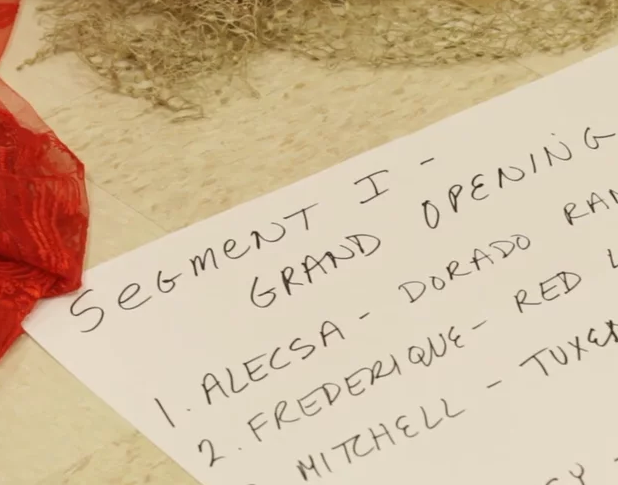 SEGMENT I -
GRAND OPENING
1. ALECSA - DORADO
2. FREDERIQUE - RED
MITCHELL -